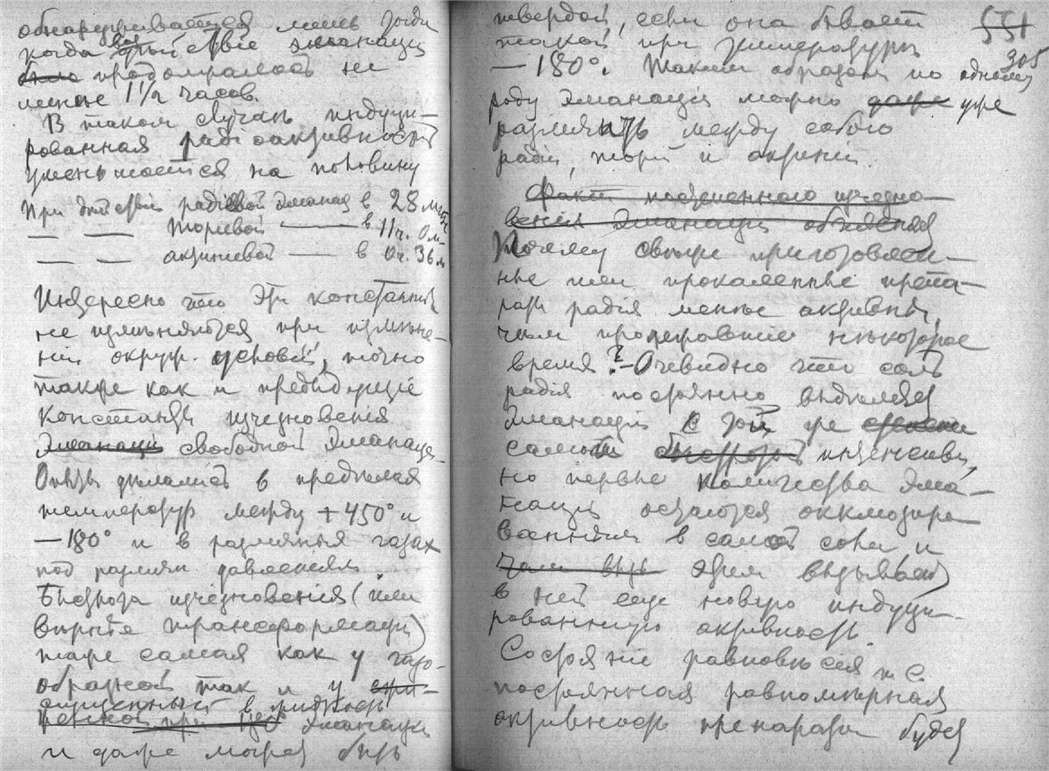 обнаруживается лишь тогда
когда воздѣйствіе эманаціи
было продолжалось не
меньше 1½ часов.
В таком случаѣ индуци-
рованная радіоактивность
уменьшается на половину
При дѣйствіи радіевой эманац. в 28 мин.
— — торіевой — в 11 ч. 0 м.
— — актиніевой — в 0 ч. 36 м.
Интересно что эти константы
не измѣняются при измѣне-
ніи окруж. условій, точно
также как и предыдущіе
константы исчезновенія
эманаціи свободной эманаціи.
Опыты дѣлались в предѣлах
температур между +450° и
—180° и в различных газах
под разным давленіем.
Быстрота исчезновенія (или
вѣрнѣе трансформаціи)
таже самая как у газо-
образной так и у
сгущенный в жидкость
при эманаціи
и даже может быть
твердой, если она бывает
такой при температурѣ
—180°. Таким образом по одному
роду эманаціи можно даже уже
различать между собою
радій, торій и актиній.
Факт постепенного исчезно-
венія эманаціи объясняет
Почему свѣже приготовлен-
ные или прокаленные препа-
раты радія менѣе активны,
чѣм пролежавшіе нѣкоторое
время? – Очевидно что соль
радія постоянно выдѣляет
эманацію с той же
самой быстротой интенсивн.,
но первые количества эма-
націи остаются окклюдиро-
ванными в самой соли и
чѣм этим вызывает
в ней еще новую индуци-
рованную активность.
Состояніе равновѣсія т. е.
постоянная равномѣрная
активность препарата будет
551
305